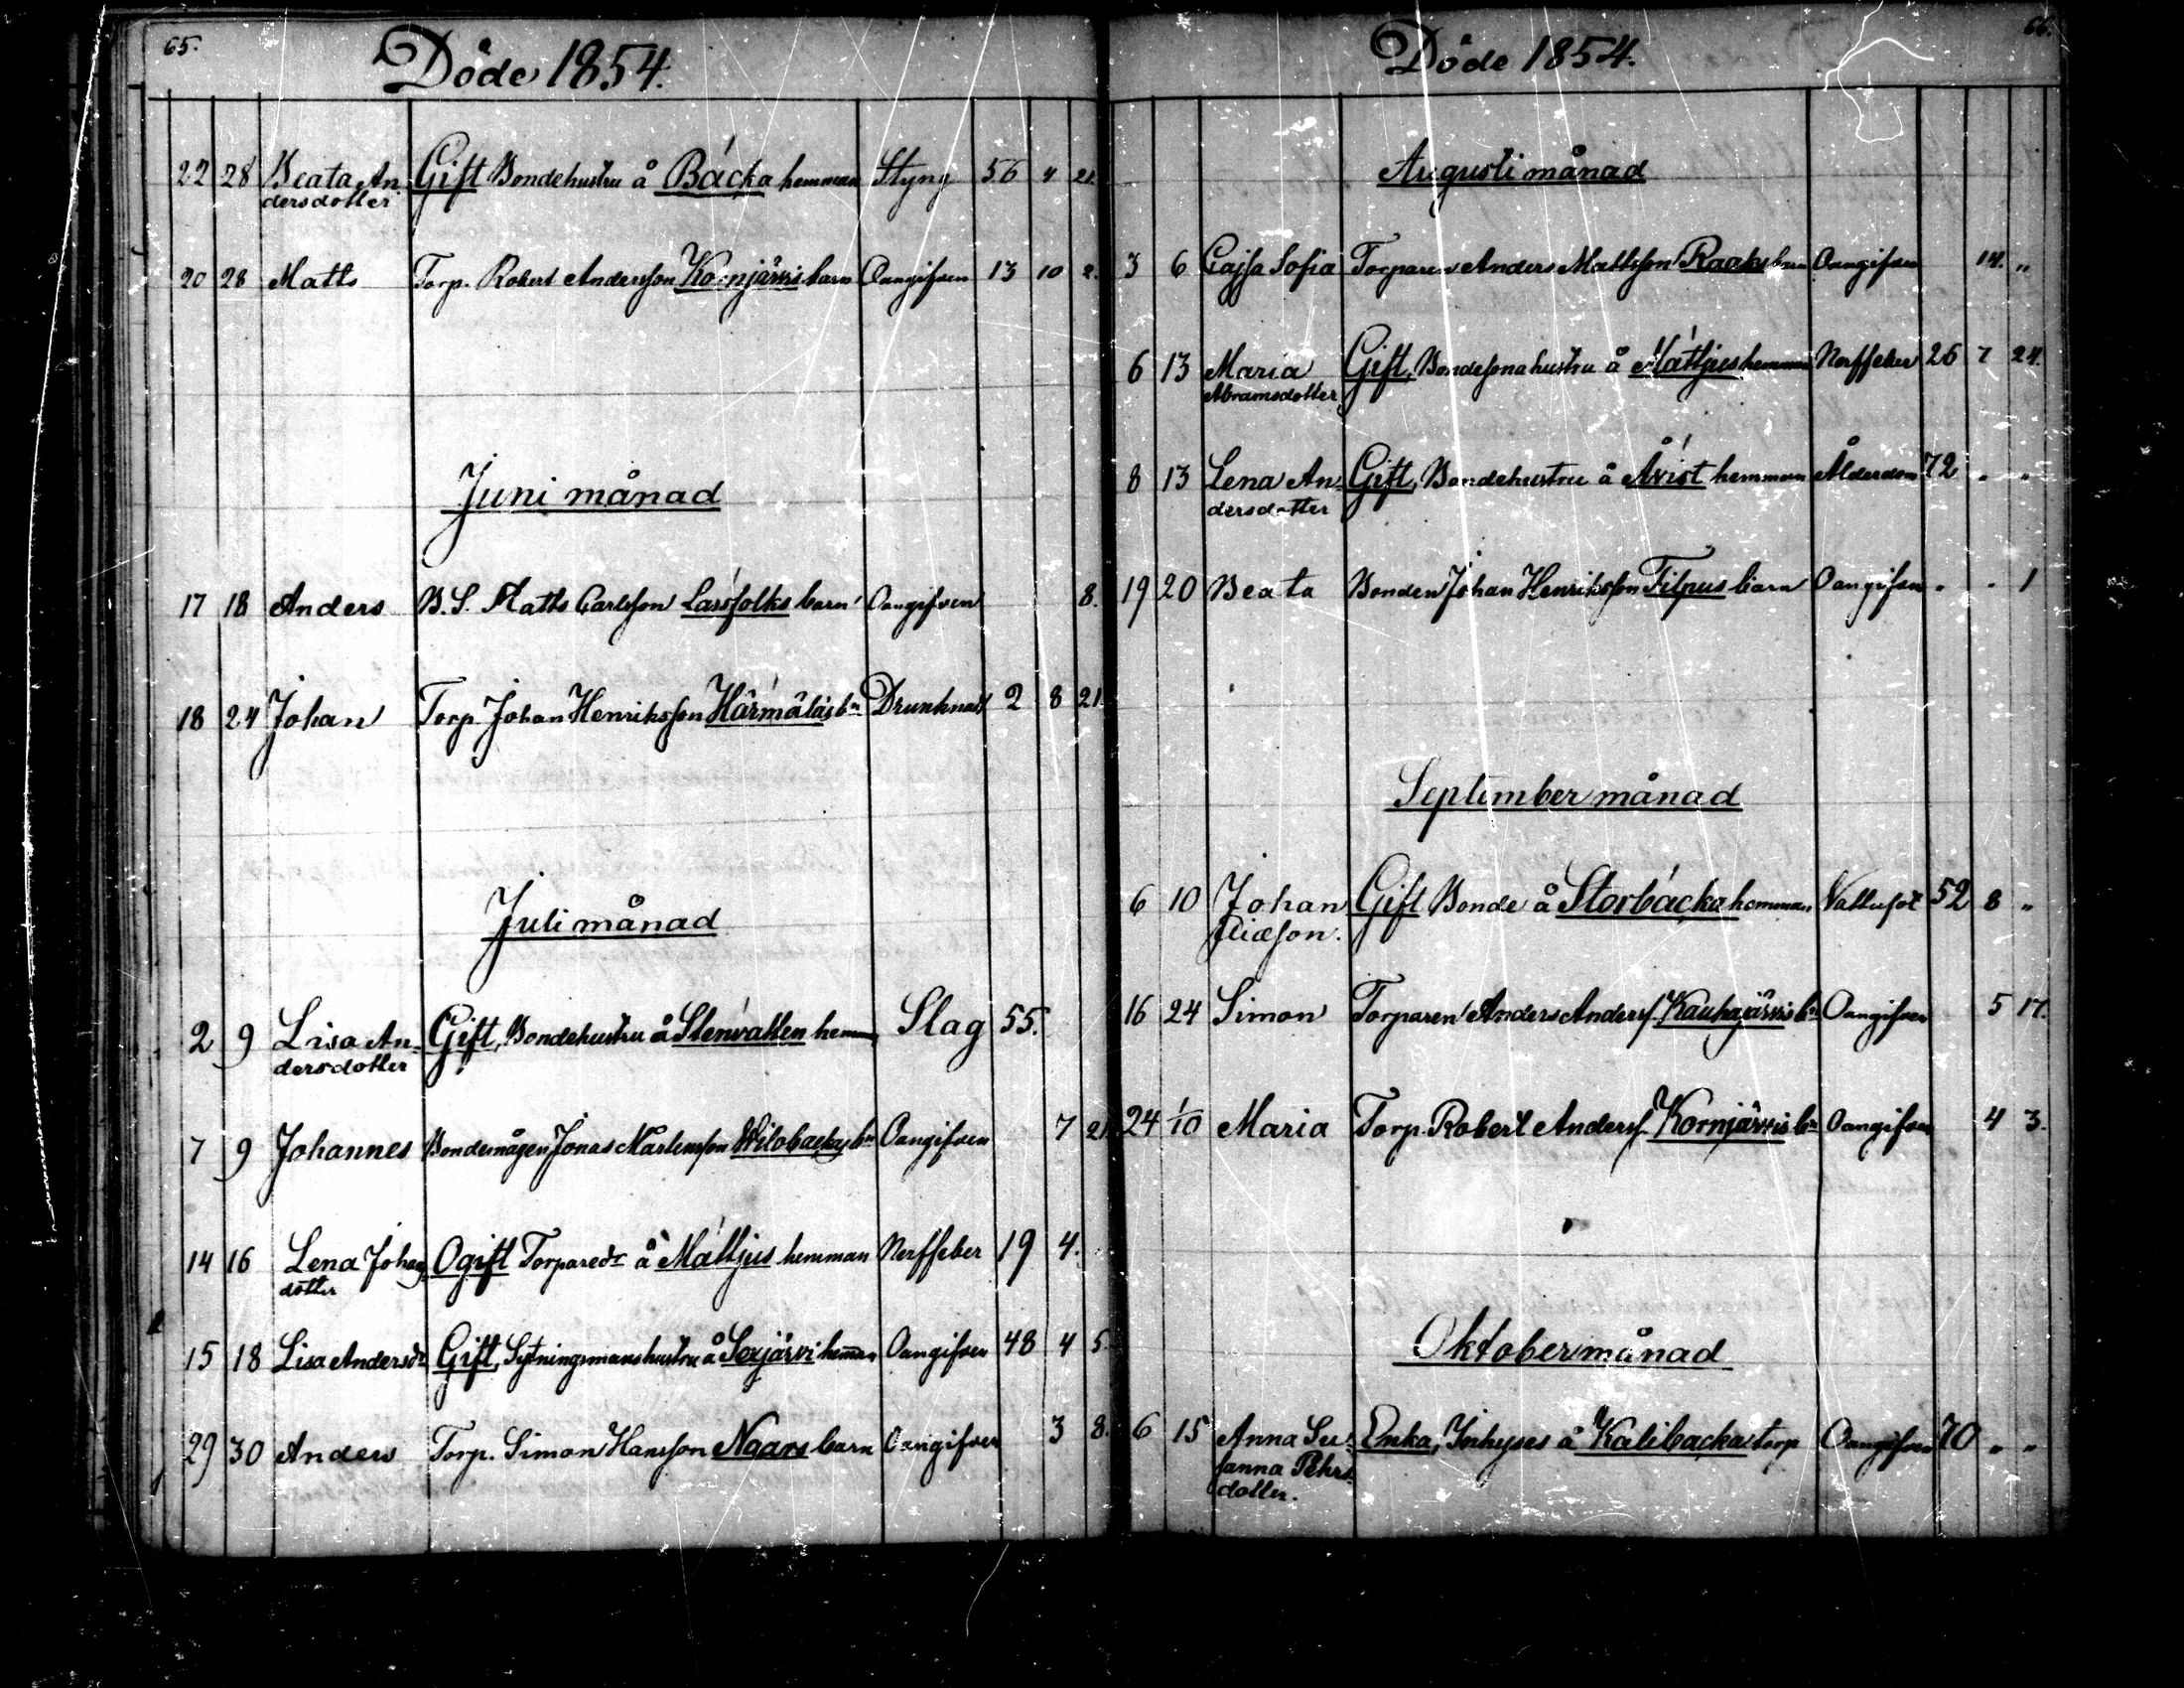 65.
Döde 1854.
22 28 Beata An Gift Bondehustru å Backa hemman Styng 56 4 21.
dersdotter
20 28 Matts Torp. Robert Andersson Kornjärvis barn Oangifven 13 10 2.
Juni månad
17 18 Anders B. S. Matts Carlsson Lassfolks barn Oangifven 8.
18 24 Johan Torp Johan Henriksson Härmäläs bn Drunknad 2 8 21
Juli månad
2 9 Lisa An- Gift, Bondehustru å Stenvatten hemm Slag 55.
dersdotter
7 9 Johannes Bondemågen Jonas Mårtensson Wilobackas bn Oangifven 7 21
14 16 Lena Johans Ogift Torparedr å Mattjus hemman Nerffeber 19 4.
dotter
15 18 Lisa Andersdr Gift, Sytningsmanshustru å Sexjärvi hemman Oangifven 48 4 5.
29 30 Anders Torp. Simon Hansson Naars barn Oangifven 3 8.
66.
Döde 1854.
Augusti månad
3 6 Cajsa Sofia Torparen Anders Mattsson Raaks barn Oangifven 14. „
6 13 Maria Gift, Bondesonahustru å Mattjus hemman Nerffeber 26 7 24.
Abramsdotter
8 13 Lena An- Gift, Bondehustru å Åvist hemman Ålderdom 72 „ „
dersdotter
19 20 Beata Bonden Johan Henriksson Filpus barn Oangifven „ „ 1
September månad
6 10 Johan Gift Bonde å Storbacka hemman Vattusot 52 8 „
16 24 Simon Torparen Anders Anderss. Kauhajärvis bn Oangifven 5 17.
24 1/10 Maria Torp. Robert Anderss. Kornjärvis bn Oangifven 4 3.
Oktober månad
6 15 Anna Su- Enka, Inhyses å Kalibacka torp Oangifven 70 „ „
sanna Pehrs-
dotter.